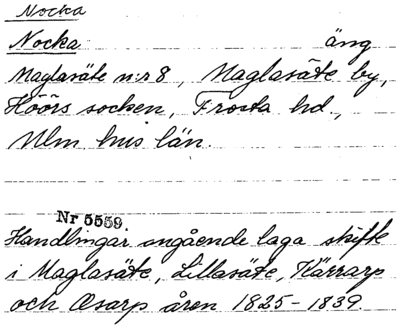 Nocka
Nocka äng
Maglasäte n:r 8, Maglasäte by,
Höörs socken, Frosta hd.,
Mlm hus län.
Nr 5559.
Handlingar angående laga skifte
i Maglasäte, Lillasäte, Kärrarp
och Osarp åren 1825-1839.